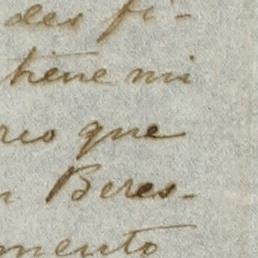 des fi-
tiene mi
reo que
n Beres-
mento